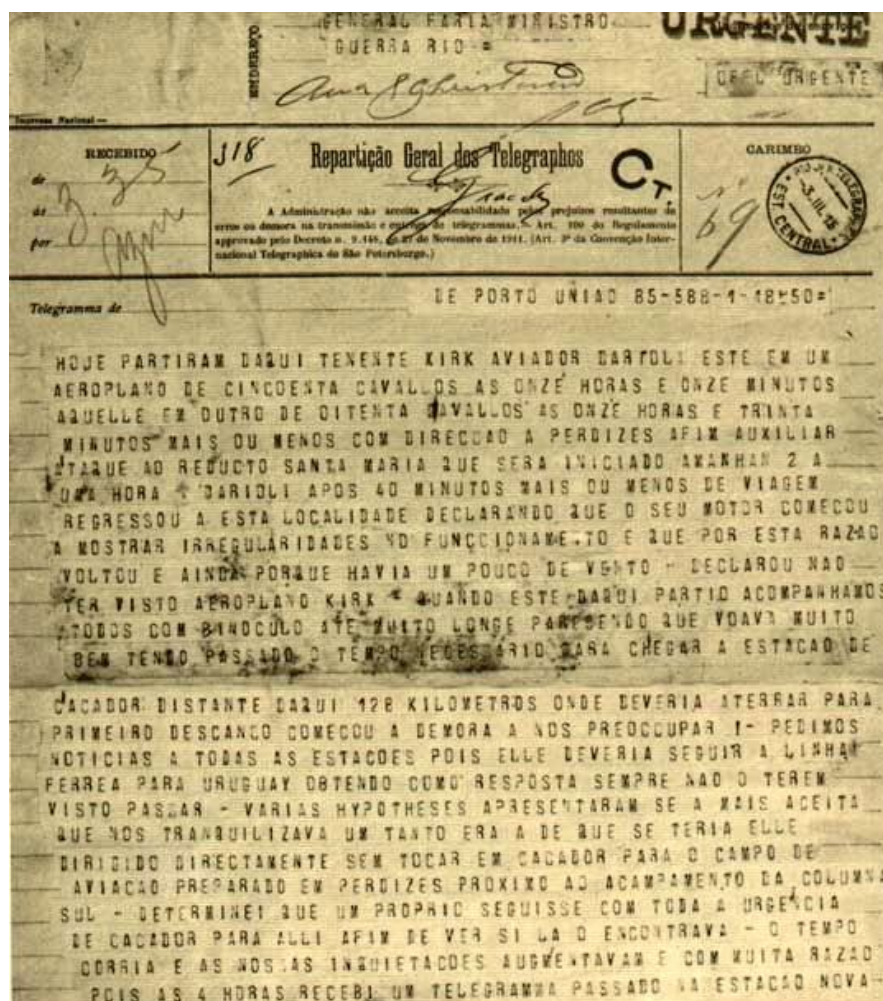 GENERAL FARIA MINISTRO
GUERRA RIO =
URGENTE
ENDEREÇO
OFFL URGENTE
Imprensa Nacional —
RECEBIDO
de
ás
por
318
Repartição Geral dos Telegraphos
A Administração não acceita responsabilidade pelos prejuizos resultantes de
erros ou demora na transmissão e entrega de telegrammas. — Art. 100 do Regulamento
approvado pelo Decreto n. 9.148, de 27 de Novembro de 1911. (Art. 3º da Convenção Inter-
nacional Telegraphica de São Petersburgo.)
C.T.
CARIMBO
69
TELEGRAPHOS
3.III.15
EST. CENTRAL
Telegramma de
DE PORTO UNIAO 85-588-1-18-50=
HOJE PARTIRAM DAQUI TENENTE KIRK AVIADOR DARIOLI ESTE EM UM
AEROPLANO DE CINCOENTA CAVALLOS AS ONZE HORAS E ONZE MINUTOS
AQUELLE EM OUTRO DE OITENTA CAVALLOS AS ONZE HORAS E TRINTA
MINUTOS MAIS OU MENOS COM DIRECCAO A PERDIZES AFIM AUXILIAR
ATAQUE AO REDUCTO SANTA MARIA QUE SERA INICIADO AMANHAN 2 A
UMA HORA - DARIOLI APOS 40 MINUTOS MAIS OU MENOS DE VIAGEM
REGRESSOU A ESTA LOCALIDADE DECLARANDO QUE O SEU MOTOR COMECOU
A MOSTRAR IRREGULARIDADES NO FUNCCIONAMENTO E QUE POR ESTA RAZAO
VOLTOU E AINDA PORQUE HAVIA UM POUCO DE VENTO - DECLAROU NAO
TER VISTO AEROPLANO KIRK - QUANDO ESTE DAQUI PARTIO ACOMPANHAMOS
TODOS COM BINOCULO ATE MUITO LONGE PARECENDO QUE VOAVA MUITO
BEM TENDO PASSADO O TEMPO NECESSARIO PARA CHEGAR A ESTACAO DE
CACADOR DISTANTE DAQUI 128 KILOMETROS ONDE DEVERIA ATERRAR PARA
PRIMEIRO DESCANCO COMECOU A DEMORA A NOS PREOCCUPAR - PEDIMOS
NOTICIAS A TODAS AS ESTACOES POIS ELLE DEVERIA SEGUIR A LINHA
FERREA PARA URUGUAY OBTENDO COMO RESPOSTA SEMPRE NAO O TEREM
VISTO PASSAR - VARIAS HYPOTHESES APRESENTARAM SE A MAIS ACEITA
QUE NOS TRANQUILIZAVA UM TANTO ERA A DE QUE SE TERIA ELLE
DIRIDIDO DIRECTAMENTE SEM TOCAR EM CACADOR PARA O CAMPO DE
AVIACAO PREPARADO EM PERDIZES PROXIMO AO ACAMPAMENTO DA COLUMNA
SUL - DETERMINEI QUE UM PROPRIO SEGUISSE COM TODA A URGENCIA
DE CACADOR PARA ALLI AFIM DE VER SI LA O ENCONTRAVA - O TEMPO
CORRIA E AS NOSSAS INQUIETACOES AUGMENTAVAM E COM MUITA RAZAO
POIS AS 4 HORAS RECEBI UM TELEGRAMMA PASSADO NA ESTACAO NOVA